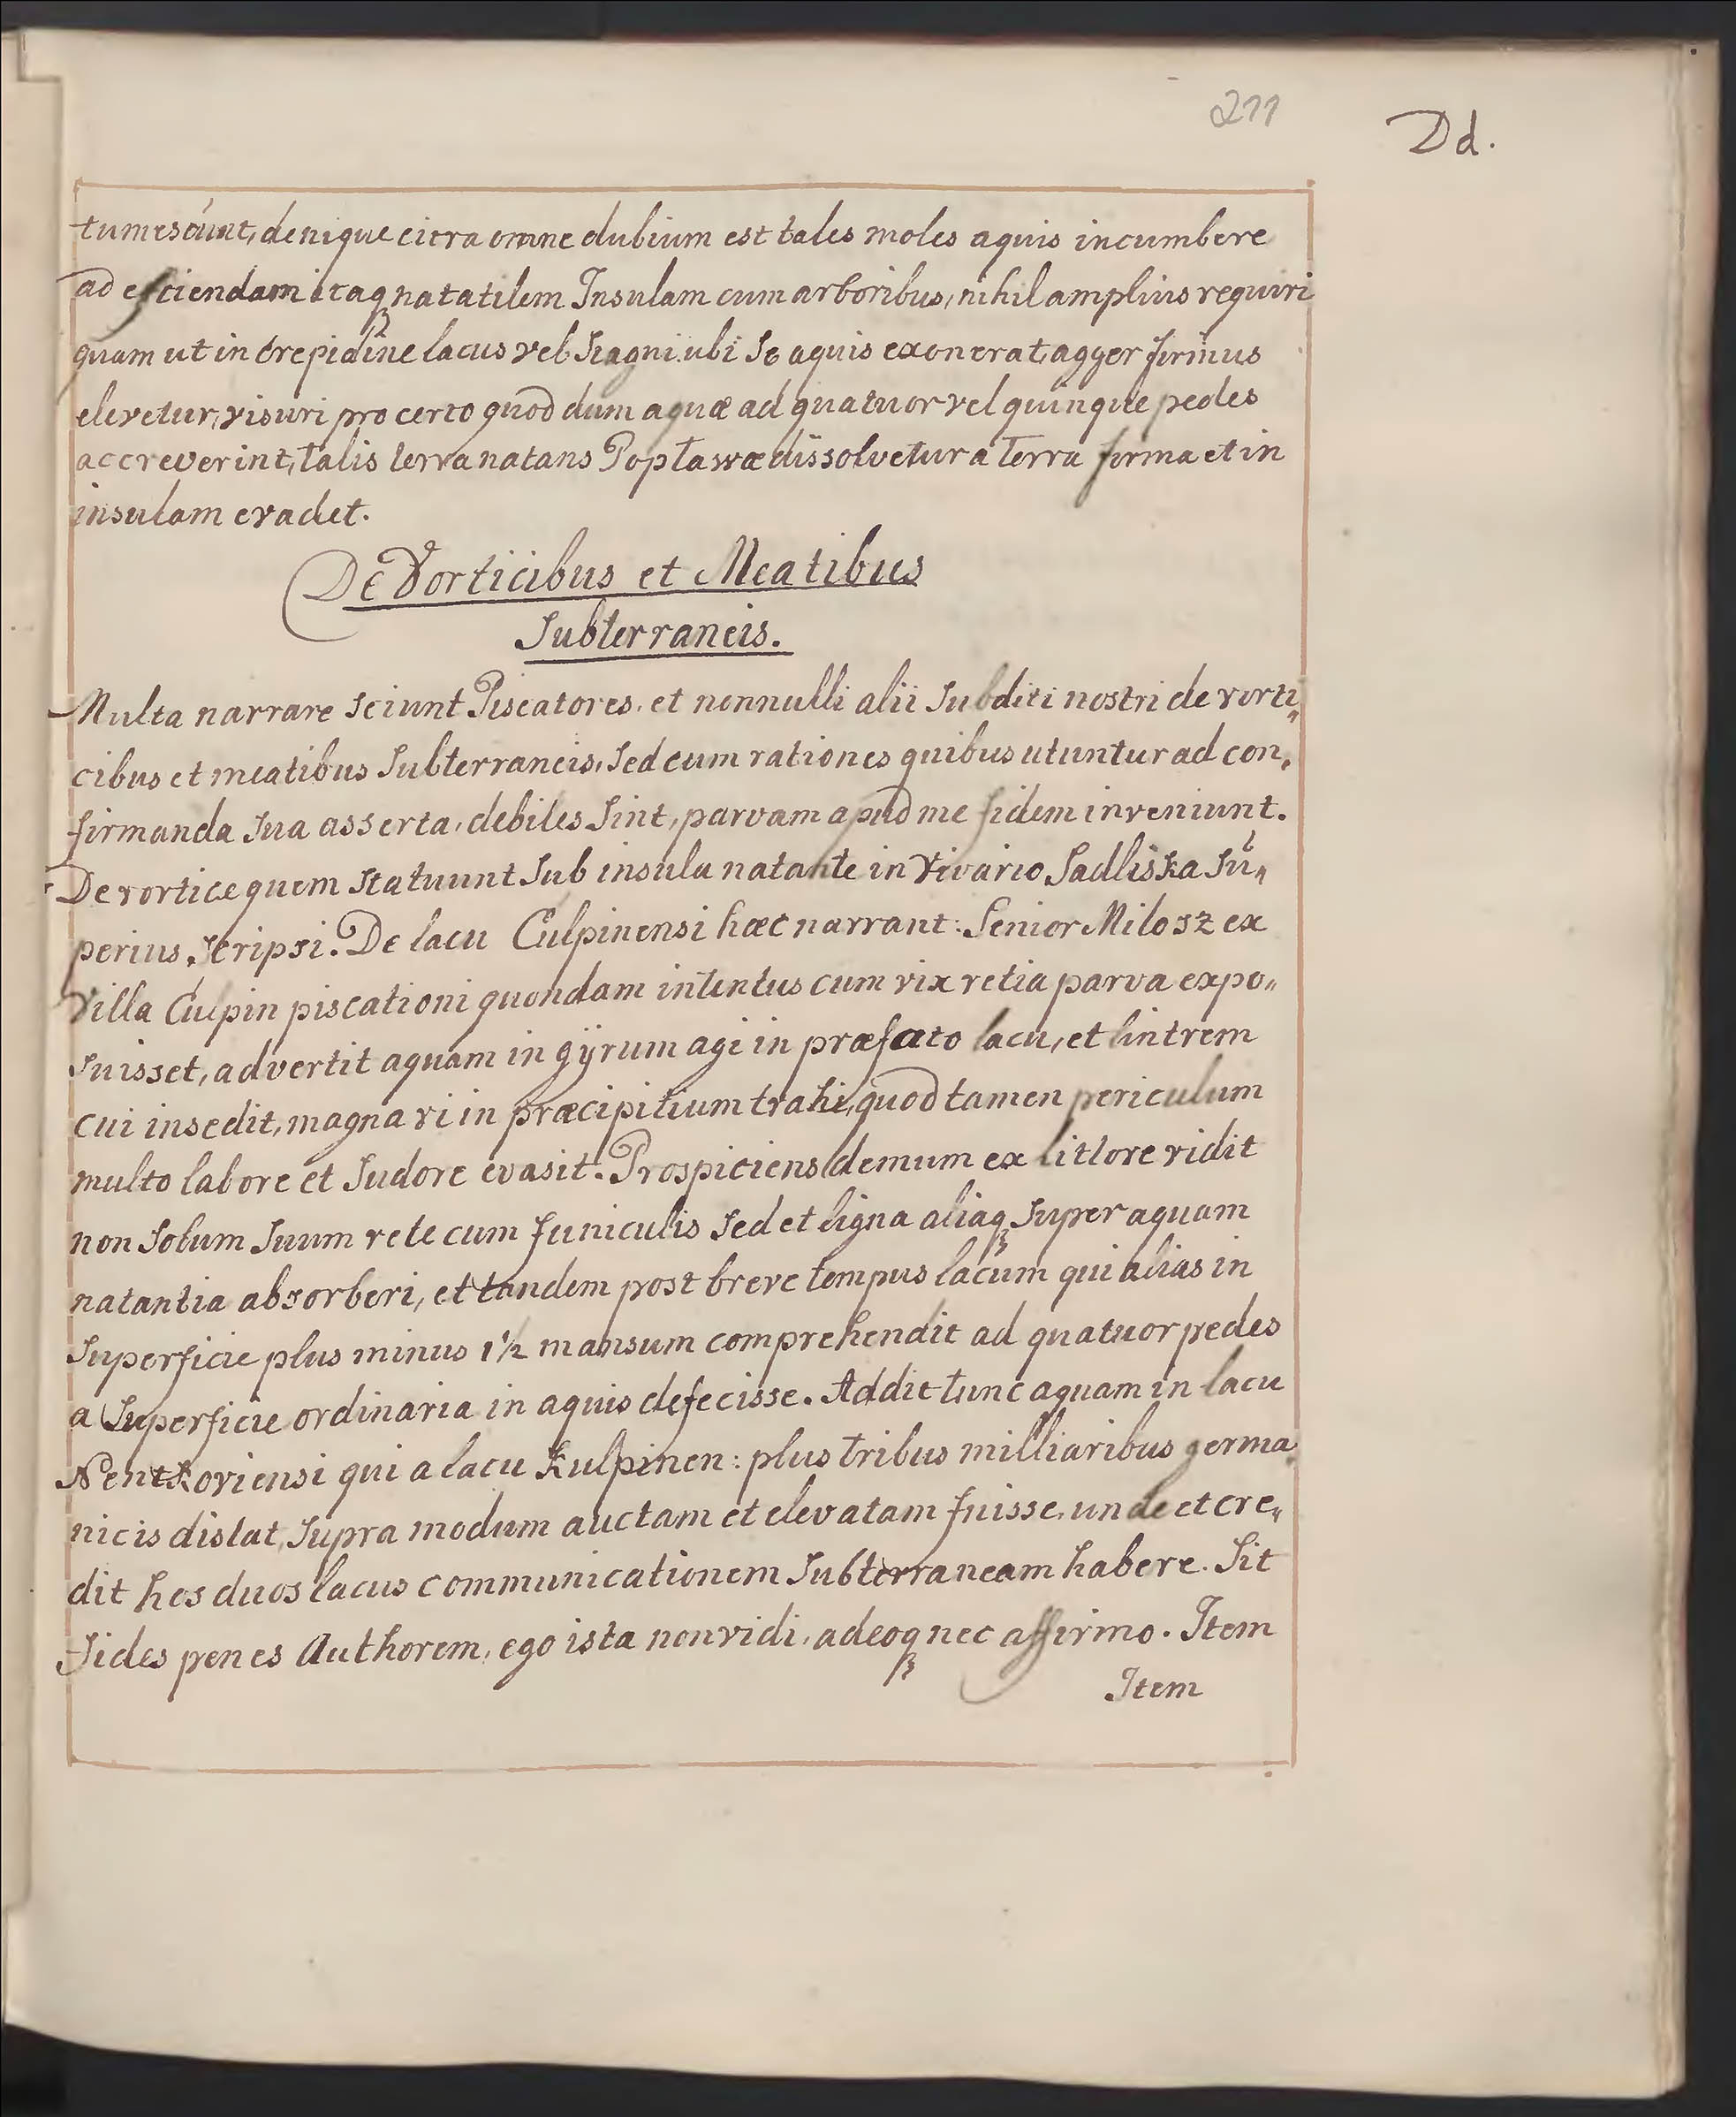 211
Dd.
tumescunt, denique citra omne dubium est tales moles aquis incumbere
ad efficiendam itaq natatilem Insulam cum arboribus, nihil amplius requiri
quam ut in crepidine lacus vel stagni ubi se aquis exonerat, agger firmus
elevetur, visuri pro certo quod dum aquæ ad quatuor vel quinque pedes
accreverint, talis terra natans Poptawæ dissolvetur a terra firma et in
insulam evadet.
De Vorticibus et Meatibus
Subterraneis.
Multa narrare sciunt Piscatores, et nonnulli alii subditi nostri de vorti„
cibus et meatibus subterraneis, sed cum rationes quibus utuntur ad con„
firmanda sua asserta, debiles sint, parvam apud me fidem inveniunt.
De vortice quem statuunt sub insula natante in vivario Sadliska su„
perius scripsi. De lacu Culpinensi hæc narrant: Senior Milosz ex
villa Culpin piscationi quondam intentus cum vix retia parva expo„
suisset, advertit aquam in gÿrum agi in præfato lacu, et lintrem
cui insedit, magna vi in præcipitium trahi, quod tamen periculum
multo labore et sudore evasit. Prospiciens demum ex littore vidit
non solum suum rete cum funiculis sed et ligna aliaq super aquam
natantia absorberi, et tandem post breve tempus lacum qui alias in
superficie plus minus 1½ mansum comprehendit ad quatuor pedes
a superficie ordinaria in aquis defecisse. Addit tunc aquam in lacu
Nentkoviensi qui a lacu Kulpinen: plus tribus milliaribus germa„
nicis distat, supra modum auctam et elevatam fuisse, unde et cre„
dit hos duos lacus communicationem subterraneam habere. Sit
fides penes Authorem, ego ista non vidi, adeoq nec affirmo. Item
Item